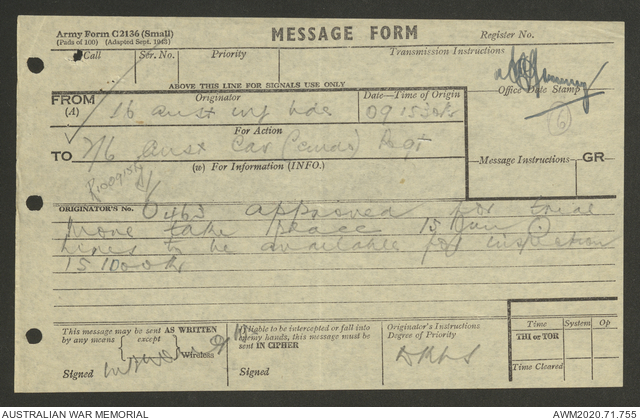 Army Form C2136 (Small)
(Pads of 100) (Adapted Sept. 1943)
MESSAGE FORM
Register No.
Call
Ser. No.
Priority
Transmission Instructions
ABOVE THIS LINE FOR SIGNALS USE ONLY
Office Date Stamp
FROM
(A)
Originator
Date—Time of Origin
16 aust inf bde
6
For Action
TO
2/6 aust Cav (Comdo) Regt
(w) For Information (INFO.)
Message Instructions
GR
ORIGINATOR'S No.
O463 approved for
move take place 15 Jun
lines to be available for inspection
15 1000 hrs
This message may be sent AS WRITTEN
by any means except Wireless
Signed
If liable to be intercepted or fall into
enemy hands, this message must be
sent IN CIPHER
Signed
Originator's Instructions
Degree of Priority
Time
System
Op
THI or TOR
Time Cleared
AUSTRALIAN WAR MEMORIAL
AWM2020.71.755